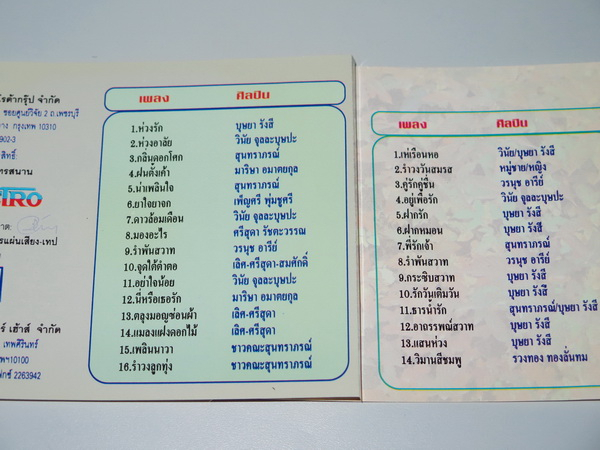 ซอยศูนย์วิจัย 2 ถ.เพชรบุรี
กรุงเทพ 10310
902-3
TRO
รแผ่นเสียง-เทป
ร์ เฮ้าส์ จำกัด
เทพศิรินทร์
10100
2263942
เพลง ศิลปิน
1.ห่วงรัก บุษยา รังสี
2.ห่วงอาลัย วินัย จุลละบุษปะ
3.กลิ่นดอกโศก สุนทราภรณ์
4.ฝนตั้งเค้า มาริษา อมาตยกุล
5.นำเพลินใจ สุนทราภรณ์
6.ยาใจยาจก เพ็ญศรี พุ่มชูศรี
7.ดาวล้อมเดือน วินัย จุลละบุษปะ
8.มองอะไร ศรีสุดา รัชตะวรรณ
9.รำพันสวาท วรนุช อารีย์
10.จุดไต้ตำตอ เลิศ-ศรีสุดา-สมศักดิ์
11.อย่าใจน้อย วินัย จุลละบุษปะ
12.นี่หรือเธอรัก มาริษา อมาตยกุล
13.ตลุงมอญซ่อนผ้า เลิศ-ศรีสุดา
14.แมลงแฝงดอกไม้ เลิศ-ศรีสุดา
15.เพลินนาวา ชาวคณะสุนทราภรณ์
16.รำวงลูกทุ่ง ชาวคณะสุนทราภรณ์
เพลง ศิลปิน
1.เห่เรือนหอ วินัย/บุษยา รังสี
2.รำวงวันสมรส หมู่ชาย/หญิง
3.คู่รักคู่ชื่น วรนุช อารีย์
4.อยู่เพื่อรัก วินัย จุลละบุษปะ
5.ฝากรัก บุษยา รังสี
6.ฝากหมอน บุษยา รังสี
7.พี่รักเจ้า สุนทราภรณ์
8.รำพันสวาท วรนุช อารีย์
9.กระซิบสวาท บุษยา รังสี
10.รักวันเติมวัน บุษยา รังสี
11.ธารน้ำรัก สุนทราภรณ์/บุษยา รังสี
12.อาถรรพณ์สวาท บุษยา รังสี
13.แสนห่วง บุษยา รังสี
14.วิมานสีชมพู รวงทอง ทองลั่นทม